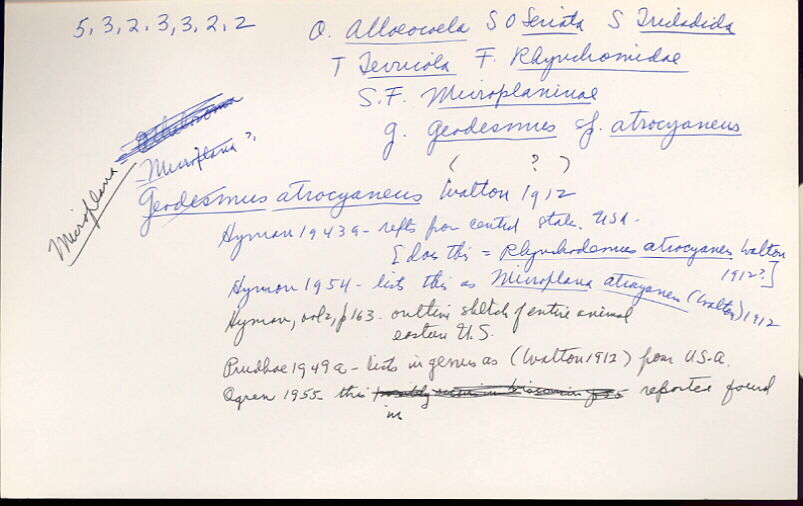 5, 3, 2. 3, 3, 2, 2
O. Alloeocoela S O Seriata S Tricladida
T Terricola F. Rhynchomidae
S.F. Microplaninae
g. Geodesmus sf. atrocyaneus
( ? )
Microplana ?
Microplana
Geodesmus atrocyaneus Walton 1912
Hyman 1943a - repts from central states. USA.
[does this = Rhynchodemus atrocyanes Walton 1912?]
Hyman 1954 - lists this as Microplana atrocyaneus (Walton) 1912
Hyman, vol 2, p 163 - outline sketch of entire animal
eastern U.S.
Prudhoe 1949a - lists in genus as (Walton 1912) from U.S.A.
Ogren 1955 this reportee found
in